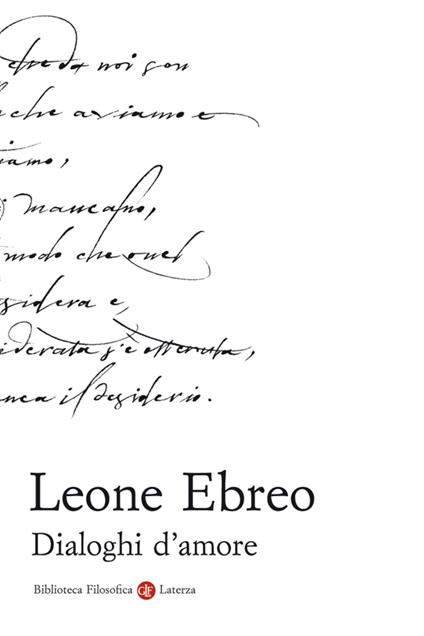 che da noi son
che aviamo e
iamo,
mancano,
modo che quel
sidera e,
iderata s'è ottenuta,
nca il desiderio.
Leone Ebreo
Dialoghi d'amore
Biblioteca Filosofica GLF Laterza